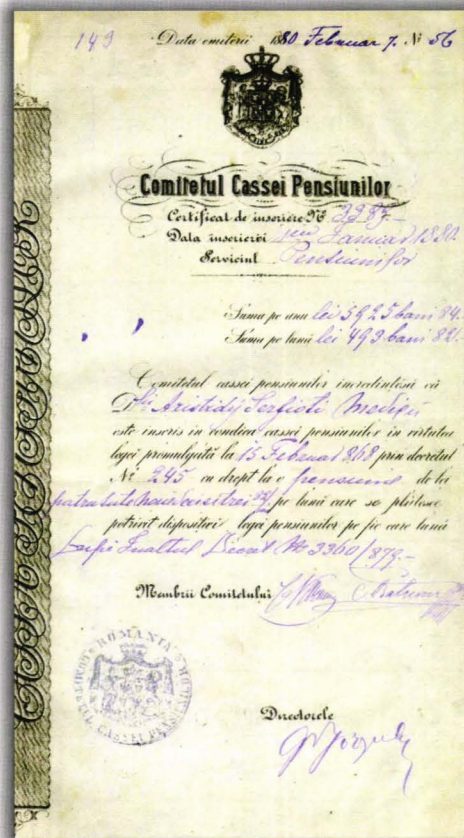 149 Data emiterii 1880 Februar 7. № 56
Comitetul Cassei Pensiunilor
Certificat de inscriere № 2287
Data inscrierei Januar 1880
Serviciul Pensiunilor
Suma pe anu lei 5925 bani 84
Suma pe lună lei 493 bani 82
Comitetul cassei pensiunilor incredintésă că
D Aristidy Serfioti
este inscris in condica cassei pensiunilor in virtutea
legei promulgată la 15 Februar 868 prin decretul
№ 245 cu drept la o pensiune de lei
patru sute pe lună care se plătesce
potrivit dispositiei legei pensiunilor pe fie care lună
Inaltul Decret № 3360/879
Membrii Comitetului
ROMANIA
Directorele